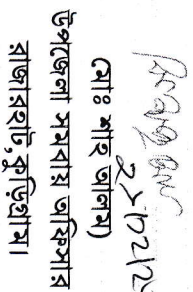 ২১/১২/১২
(মোঃ শাহ আলম)
উপজেলা সমবায় অফিসার
রাজারহাট, কুড়িগ্রাম।